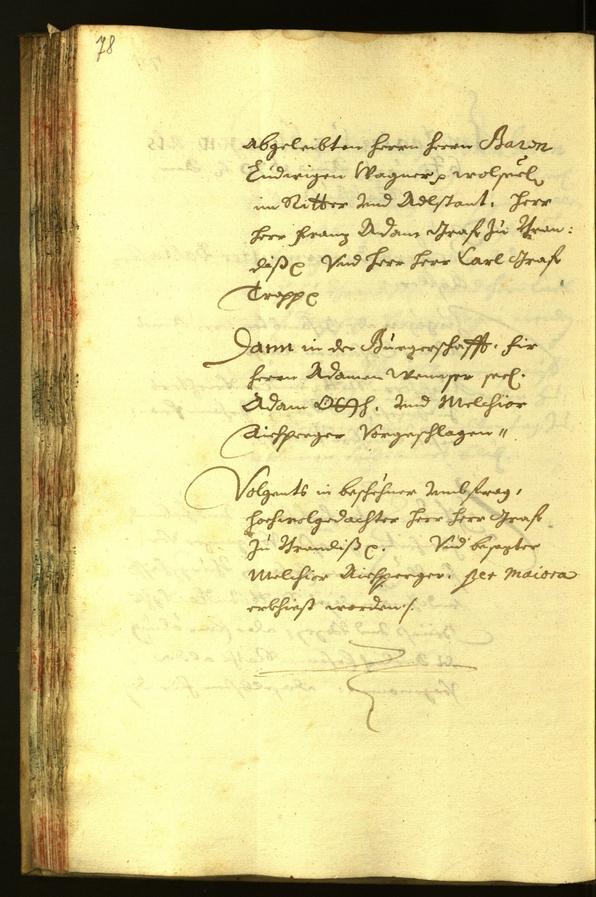 78
Abgeleibten Herrn Herrn Baron
Ludwigen Wagner p wolseel.
im Ritter und Adlstant. Herr
Herr Franz Adam Graf zu Bran:
diß p Und Herr Herr Carl Graf
Trapp p
Dann in der Bürgerschafft, für
Herrn Adamen Wenser seel.
Adam und Melchior
Aichperger Vorgeschlagen //
Volgents in beschehner Umbfrag,
hochwolgedachter Herr Herr Graf
zu Brandiß p. Und besagter
Melchior Aichperger. per maiora
erkhiest worden /.